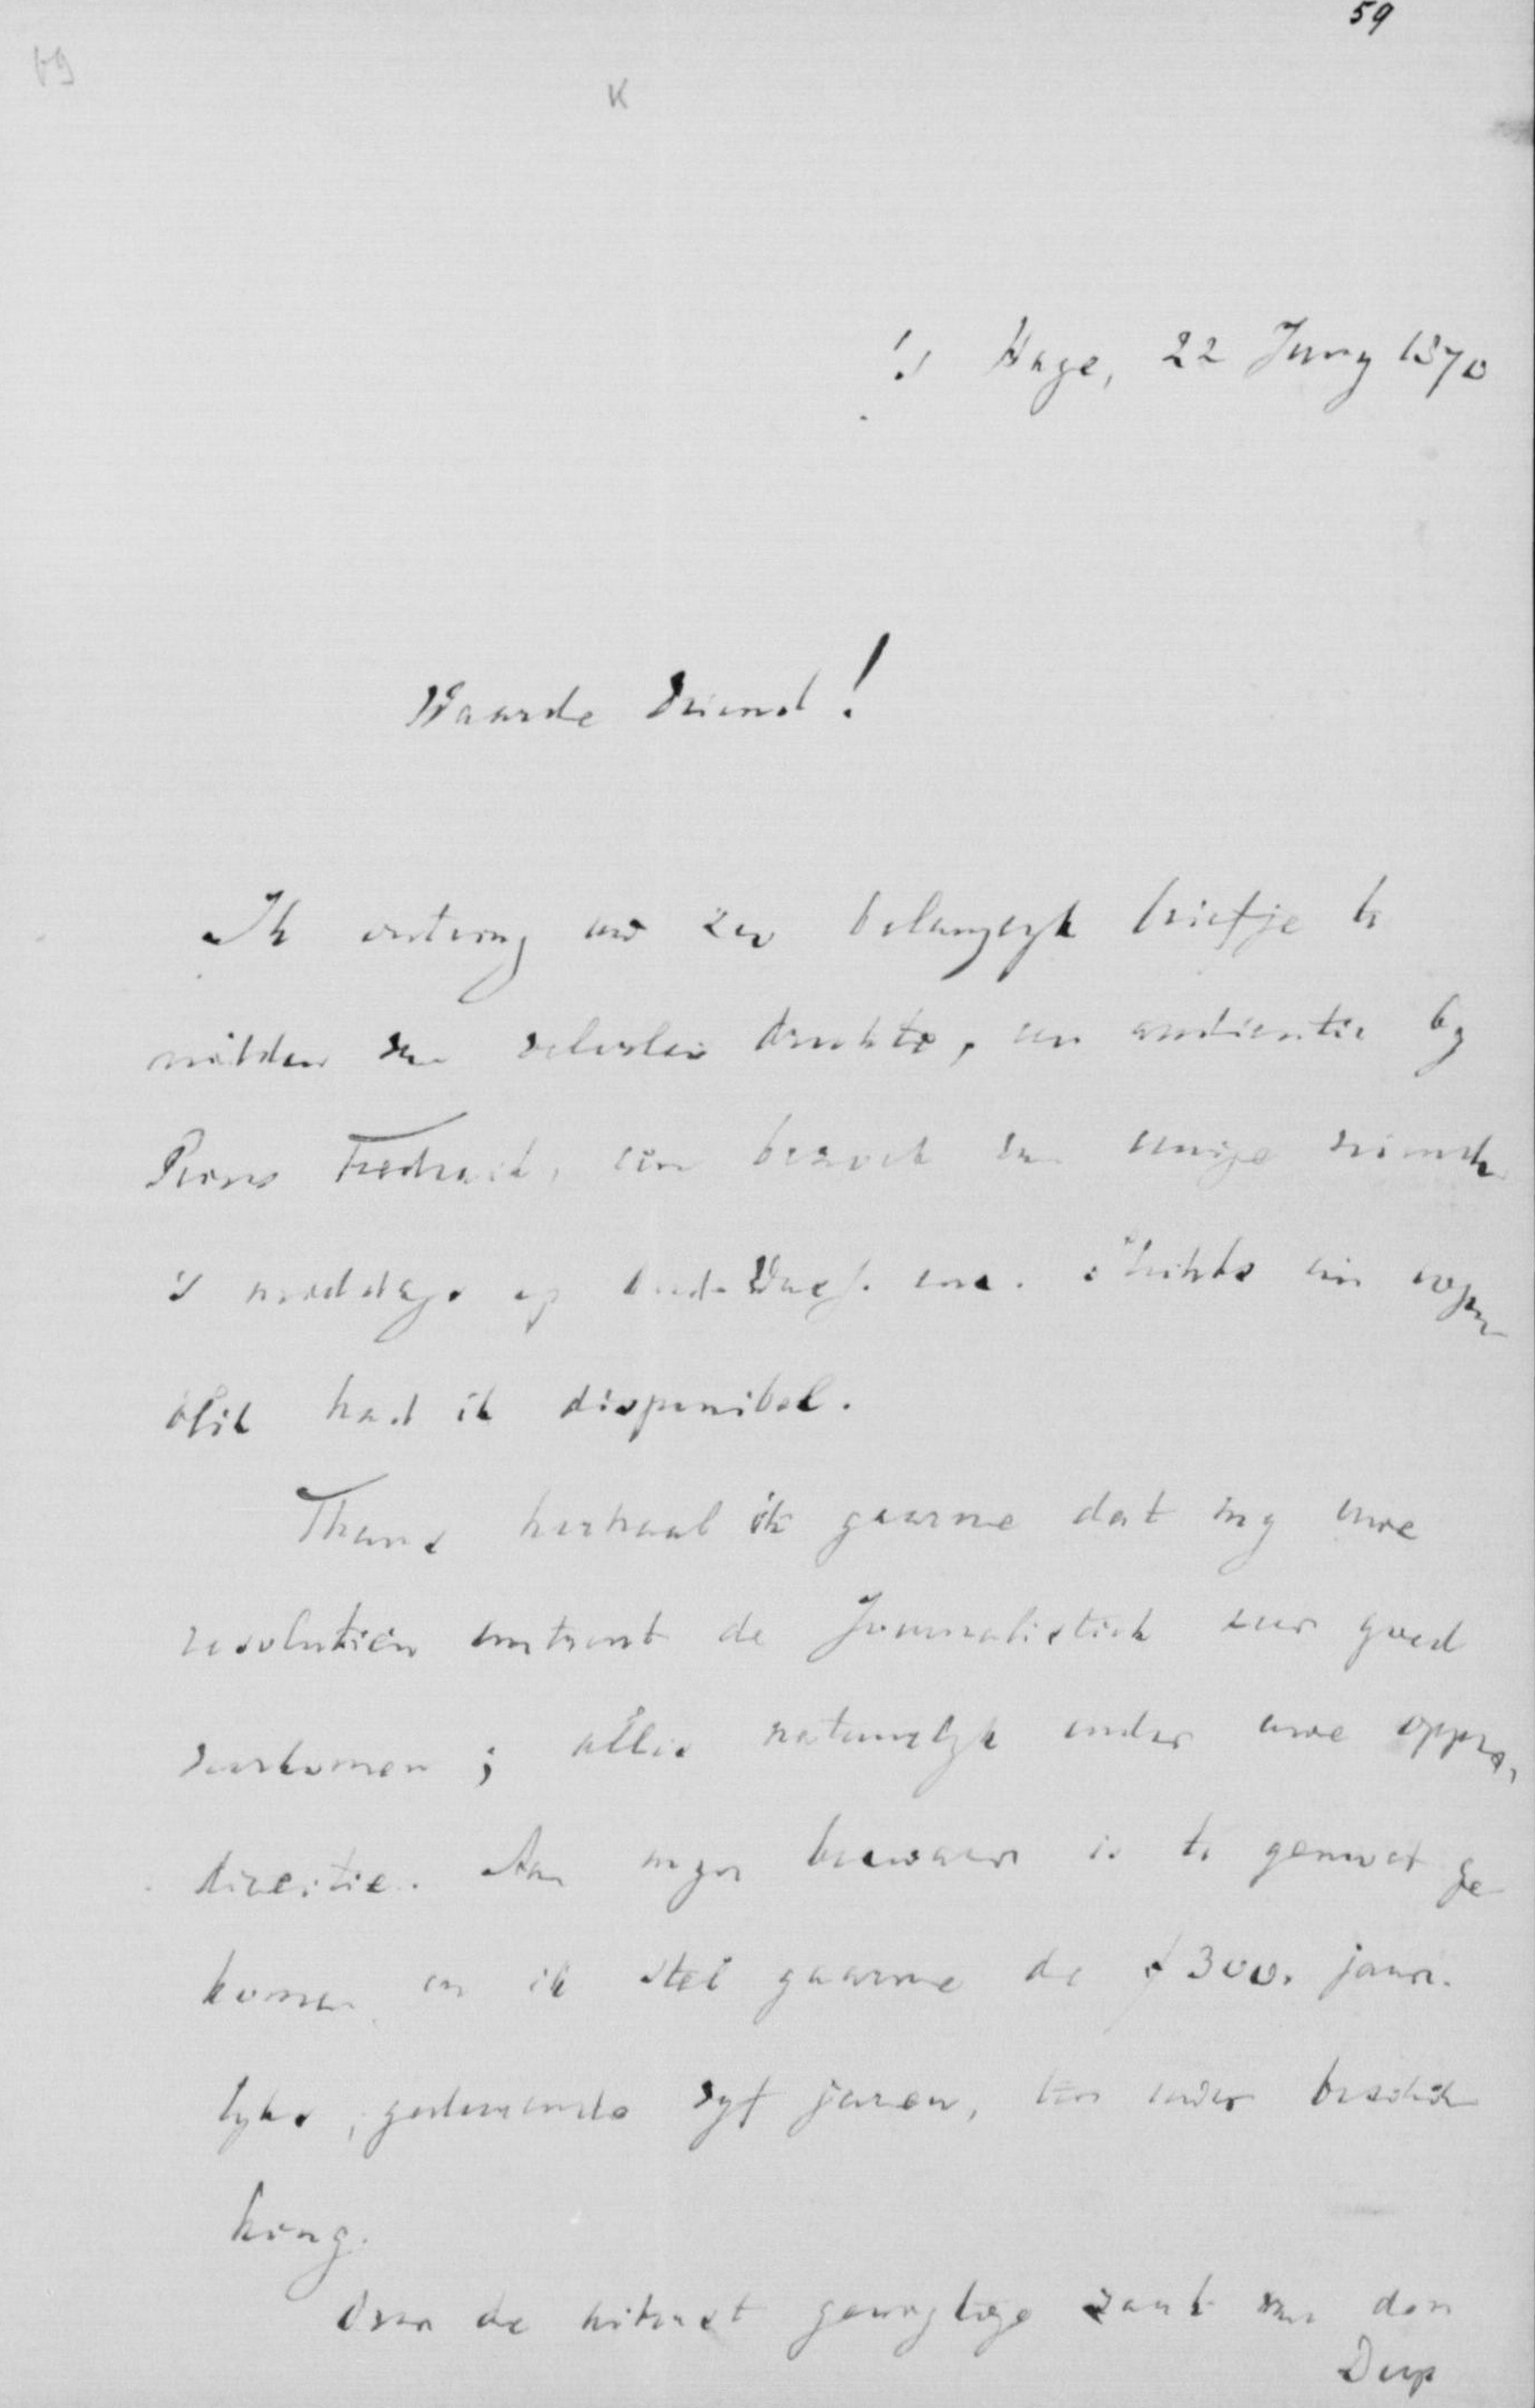 59
69
K
's Hage, 22 Juny 1870
Waarde Vriend!
Ik ontving uw zeer belangryk briefje te
midden van velerlei drukte, een audientie by
Prins Frederik, een bezoek van eenige vrienden
's middags op Oud-
blik had ik disponibel.
Thans herhaal ik gaarne dat my uwe
resolutiën omtrent de Journalistiek zeer goed
voorkomen; alles natuurlyk onder uwe opper
directie. Aan myn bezwaren is te gemoet ge
komen en ik stel gaarne de f 300. jaar-
lyks, gedurende vyf jaren, ten uwer beschik
king.
Over de uiterst gewigtige zaak van den
Dup